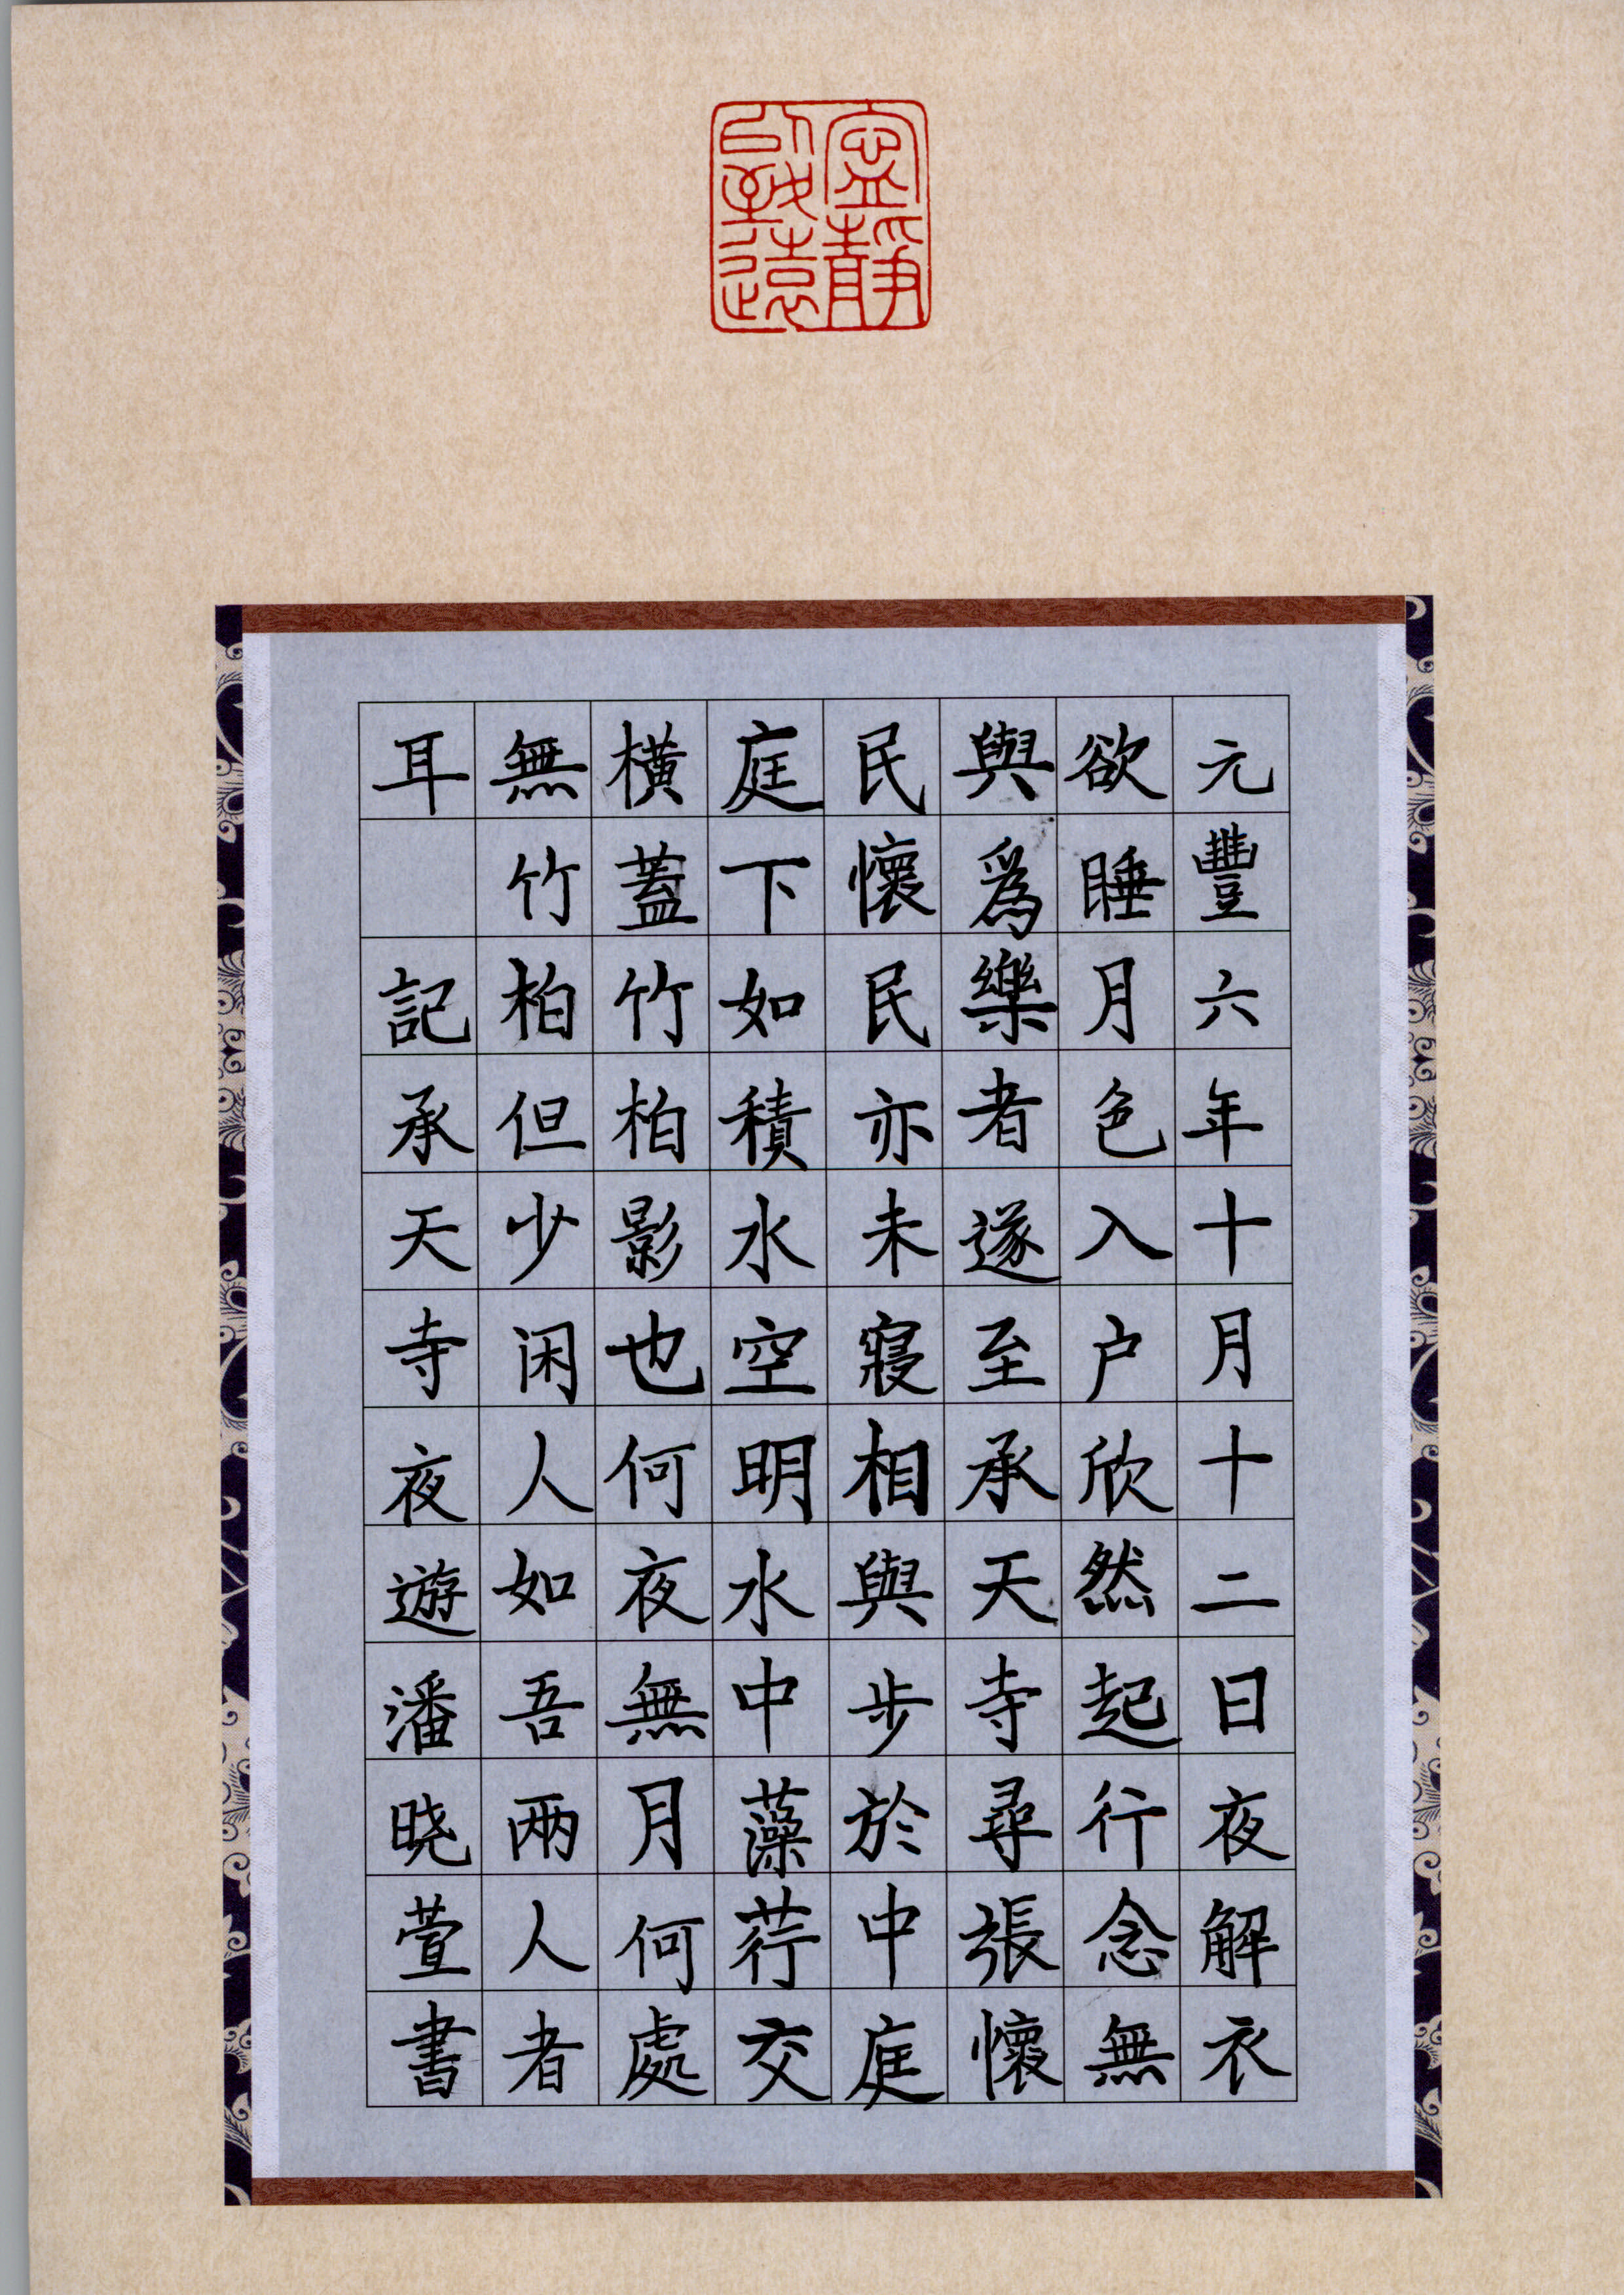 寧靜致遠
元豐六年十月十二日夜解衣
欲睡月色入户欣然起行念無
與爲樂者遂至承天寺尋張懷
民懷民亦未寢相與步於中庭
庭下如積水空明水中藻荇交
橫蓋竹柏影也何夜無月何處
無竹柏但少闲人如吾兩人者
耳 記承天寺夜遊潘晓萱書